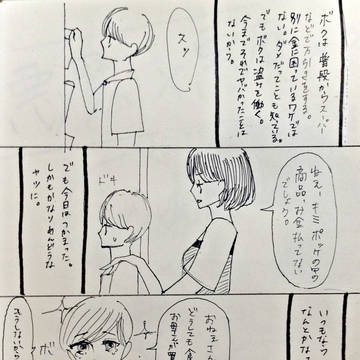 ボクは普段からスーパー
などで万引をする。
別に金に困っているワケでは
ない。ダメだってことも知っている。
でもボクは盗みを働く。
今までそれでヤバかったことは
ないから。
スッ
ねえ…キミ ポッケの中の
商品、お金払ってない
でしょ?。
ドキ
でも今日はつかまった。
しかもかなりめんどうな
ヤツに。
いつもなら
なんとかな
おねえさん
どうしても食
お母さんが買